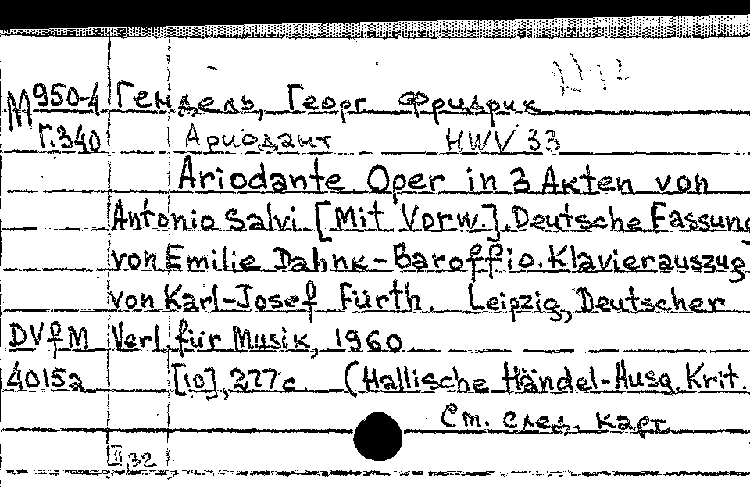 М950-4 Гендель, Георг Фридрик
Г.340 Ариодант HWV 33
Ariodante Oper in 3 Akten von
Antonio Salvi [Mit Vorw.]. Deutsche Fassung
von Emilie Dahnk-Baroffio. Klavierauszug
von Karl-Josef Fürth. Leipzig, Deutscher
DVfM Verl. für Musik, 1960
4015a [10], 277c (Hallische Händel-Ausg. Krit.
См. след. карт
II,32